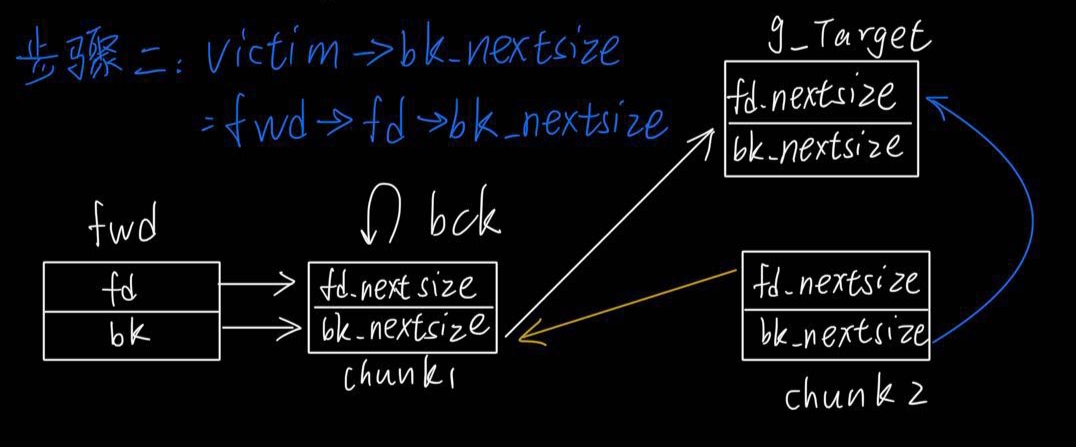 步骤二: victim->bk_nextsize
=fwd->fd->bk_nextsize
g_Target
fd.nextsize
bk_nextsize
fwd
fd
bk
bck
fd.nextsize
bk_nextsize
chunk1
fd_nextsize
bk_nextsize
chunk2